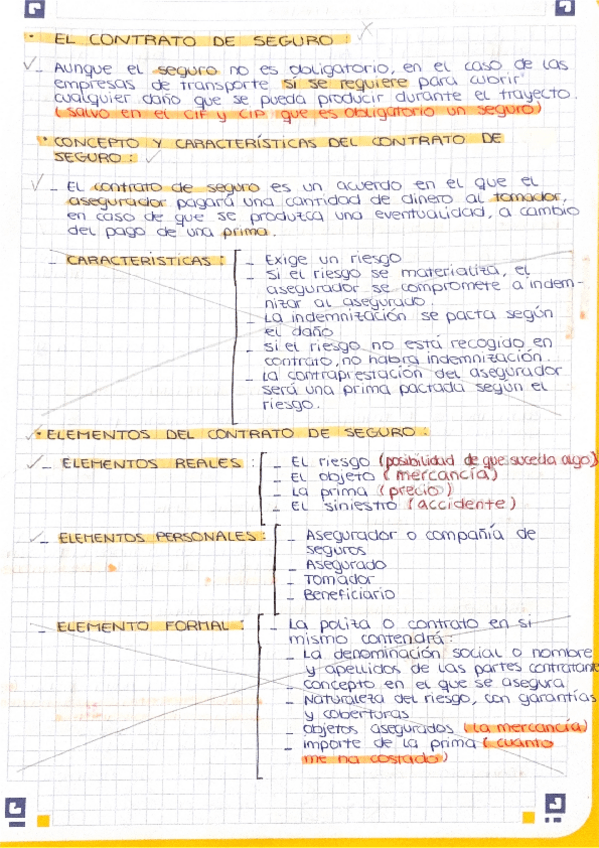 · EL CONTRATO DE SEGURO :
- Aunque el seguro no es obligatorio, en el caso de las
empresas de transporte si se requiere para cubrir
cualquier daño que se pueda producir durante el trayecto.
(salvo en el CIF y CIP que es obligatorio un seguro)
· CONCEPTO Y CARACTERÍSTICAS DEL CONTRATO DE
SEGURO :
- El contrato de seguro es un acuerdo en el que el
asegurador pagará una cantidad de dinero al tomador,
en caso de que se produzca una eventualidad, a cambio
del pago de una prima.
- CARACTERISTICAS :
- Exige un riesgo
- Si el riesgo se materializa, el
asegurador se compromete a indem-
nizar al asegurado.
- La indemnización se pacta según
el daño
- Si el riesgo no está recogido en
contrato, no habrá indemnización.
- La contraprestación del asegurador
será una prima pactada según el
riesgo.
· ELEMENTOS DEL CONTRATO DE SEGURO :
- ELEMENTOS REALES :
- El riesgo (posibilidad de que suceda algo)
- El objeto (mercancía)
- La prima (precio)
- El siniestro (accidente)
- ELEMENTOS PERSONALES :
- Asegurador o compañía de
seguros
- Asegurado
- Tomador
- Beneficiario
- ELEMENTO FORMAL :
- La poliza o contrato en si
mismo contendrá :
- La denominación social o nombre
y apellidos de las partes contratante
- concepto en el que se asegura
- Naturaleza del riesgo, con garantías
y coberturas
- objetos asegurados (la mercancía)
- importe de la prima (cuanto
me ha costado)